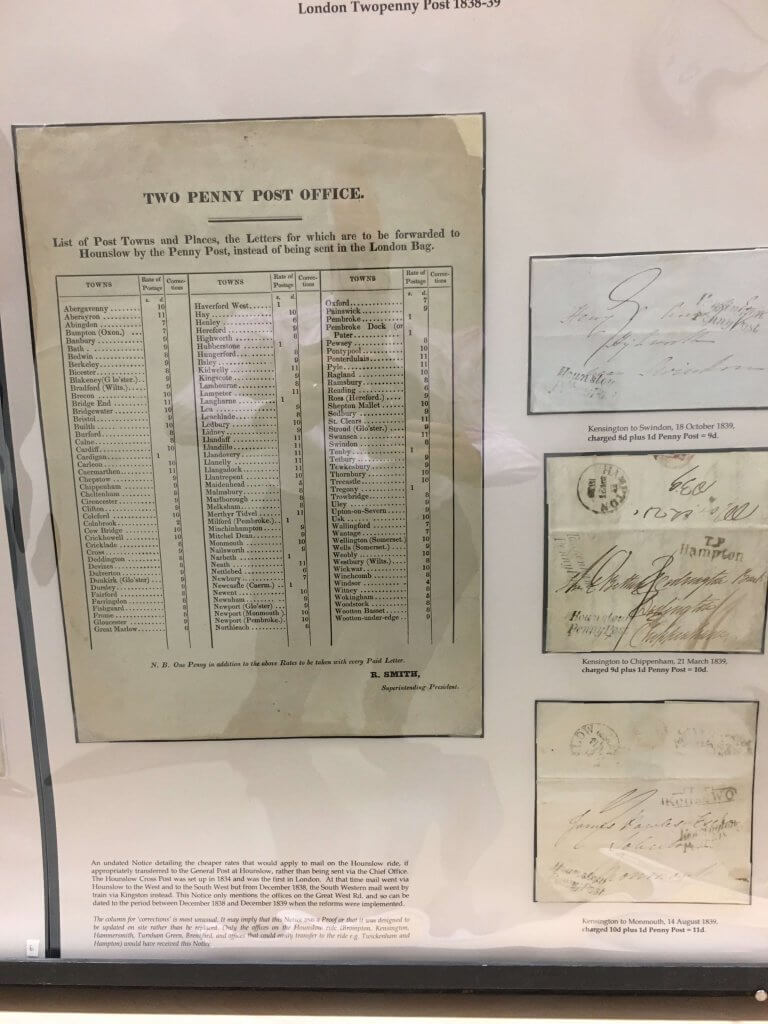 London Twopenny Post 1838-39
TWO PENNY POST OFFICE.
List of Post Towns and Places, the Letters for which are to be forwarded to
Hounslow by the Penny Post, instead of being sent in the London Bag.
TOWNS Rate of Postage Corrections
s. d.
Abergavenny 10
Aberayron 11
Abingdon 7
Bampton (Oxon.) 7
Banbury
Bath
Bedwin 8
Berkeley 9
Bicester 8
Blakeney (Glo'ster.) 9
Bradford (Wilts.) 9
Brecon 10
Bridge End 11
Bridgewater 10
Bristol 9
Builth 10
Burford 8
Calne 8
Cardiff 10
Cardigan 1
Carleon 10
Caermarthen 11
Chepstow 9
Chippenham 9
Cheltenham 8
Cirencester 8
Clifton 9
Coleford 10
Colnbrook
Cow Bridge 10
Crickhowell 10
Cricklade 8
Cross
Deddington
Devizes
Dulverton
Dunkirk (Glo'ster)
Dursley
Fairford
Farringdon
Fishguard
Frome
Gloucester
Great Marlow 6
TOWNS Rate of Postage Corrections
s. d.
Haverford West 1
Hay 10
Henley 6
Hereford 9
Highworth 8
Hubberstone 1
Hungerford 8
Ilsley
Kidwelly 11
Kingscote 9
Lambourne 8
Lampeter 11
Langharne 1
Lea 9
Leachlade 8
Ledbury 10
Lidney 9
Llandaff 11
Llandillo 11
Llandovery 11
Llanelly 11
Llangadock 11
Llantrepent 10
Maidenhead
Malmsbury 8
Marlborough 8
Melksham 8
Merthyr Tidvel 11
Milford (Pembroke.) 1
Minchinhampton 9
Mitchel Dean 9
Monmouth 10
Nailsworth 9
Narbeth 1
Neath 11
Nettlebed 6
Newbury 7
Newcastle (Caerm.) 1
Newent 10
Newnham 9
Newport (Glo'ster) 9
Newport (Monmouth) 10
Newport (Pembroke.) 10
Northleach 6
TOWNS Rate of Postage Corrections
s. d.
Oxford 7
Painswick 9
Pembroke 1
Pembroke Dock (or
Pater 1
Pewsey 8
Pontypool 10
Ponterdulais 11
Pyle 11
Ragland 10
Ramsbury 8
Reading 6
Ross (Hereford.) 9
Shepton Mallet 10
Sodbury 9
St. Clears 11
Stroud (Glo'ster.) 9
Swansea 11
Tenby 1
Tetbury 9
Tewkesbury 9
Thornbury 10
Trecastle 10
Tregony 1
Trowbridge 8
Uley 9
Upton-on-Severn 9
Usk 10
Wallingford 7
Wantage 7
Wellington (Somerset.) 10
Wells (Somerset.) 9
Weobly 10
Westbury (Wilts.) 8
Wickwar 10
Winchcomb 8
Windsor 4
Witney 8
Wokingham
Woodstock 8
Wootton Basset 8
Wootton-under-edge 9
N. B. One Penny in addition to the above Rates to be taken with every Paid Letter.
R. SMITH,
Superintending President.
Hounslow
Swindon
Kensington to Swindon, 18 October 1839,
charged 8d plus 1d Penny Post = 9d.
HAMPTON
1839
T.P
Hampton
Hounslow
Penny Post
Chippenham
Kensington to Chippenham, 21 March 1839,
charged 9d plus 1d Penny Post = 10d.
James
Hounslow
Penny Post
Monmouth
Kensington to Monmouth, 14 August 1839,
charged 10d plus 1d Penny Post = 11d.
An undated Notice detailing the cheaper rates that would apply to mail on the Hounslow ride, if
appropriately transferred to the General Post at Hounslow, rather than being sent via the Chief Office.
The Hounslow Cross Post was set up in 1834 and was the first in London. At that time mail went via
Hounslow to the West and to the South West but from December 1838, the South Western mail went by
train via Kingston instead. This Notice only mentions the offices on the Great West Rd. and so can be
dated to the period between December 1838 and December 1839 when the reforms were implemented.
The column for 'corrections' is most unusual. It may imply that this Notice was a Proof or that it was designed to
be updated on site rather than be replaced. Only the offices on the Hounslow ride (Brompton, Kensington,
Hammersmith, Turnham Green, Brentford, and offices that could easily transfer to the ride e.g. Twickenham and
Hampton) would have received this Notice.
6